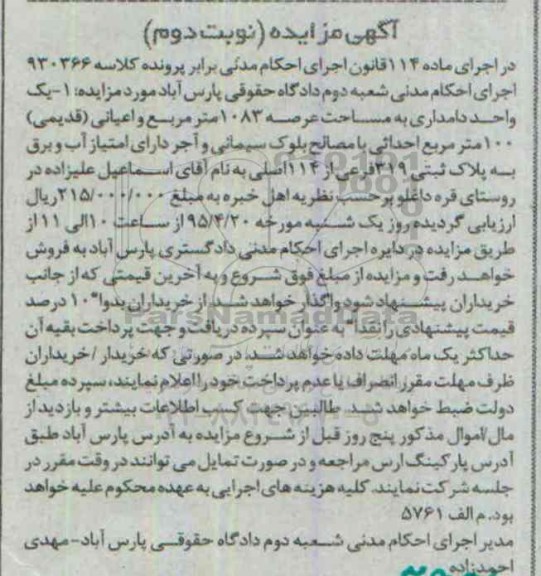 آگهی مزایده (نوبت دوم)
در اجرای ماده ۱۱۴ قانون اجرای احکام مدنی برابر پرونده کلاسه ۹۳۰۳۶۶
اجرای احکام مدنی شعبه دوم دادگاه حقوقی پارس آباد مورد مزایده: ۱-یک
واحد دامداری به مساحت عرصه ۱۰۸۳ متر مربع و اعیانی (قدیمی)
۱۰۰ متر مربع احداثی با مصالح بلوک سیمانی و آجر دارای امتیاز آب و برق
به پلاک ثبتی ۳۱۹ فرعی از ۱۱۴ اصلی به نام آقای اسماعیل علیزاده در
روستای قره داغلو بر حسب نظریه اهل خبره به مبلغ ۲۱۵/۰۰۰/۰۰۰ ریال
ارزیابی گردیده روز یک شنبه مورخه ۹۵/۴/۲۰ از ساعت ۱۰ الی ۱۱ از
طریق مزایده در دایره اجرای احکام مدنی دادگستری پارس آباد به فروش
خواهد رفت و مزایده از مبلغ فوق شروع و به آخرین قیمتی که از جانب
خریداران پیشنهاد شود واگذار خواهد شد. از خریداران بدوا" ۱۰ درصد
قیمت پیشنهادی را نقدا" به عنوان سپرده دریافت و جهت پرداخت بقیه آن
حداکثر یک ماه مهلت داده خواهد شد. در صورتی که خریدار / خریداران
ظرف مهلت مقرر انصراف یا عدم پرداخت خود را اعلام نمایند، سپرده مبلغ
دولت ضبط خواهد شد. طالبین جهت کسب اطلاعات بیشتر و بازدید از
مال / اموال مذکور پنج روز قبل از شروع مزایده به آدرس پارس آباد طبق
آدرس پارکینگ ارس مراجعه و در صورت تمایل می توانند در وقت مقرر در
جلسه شرکت نمایند. کلیه هزینه های اجرایی به عهده محکوم علیه خواهد
بود. م الف ۵۷۶۱
مدیر اجرای احکام مدنی شعبه دوم دادگاه حقوقی پارس آباد- مهدی
احمدزاده
ParsNamadData